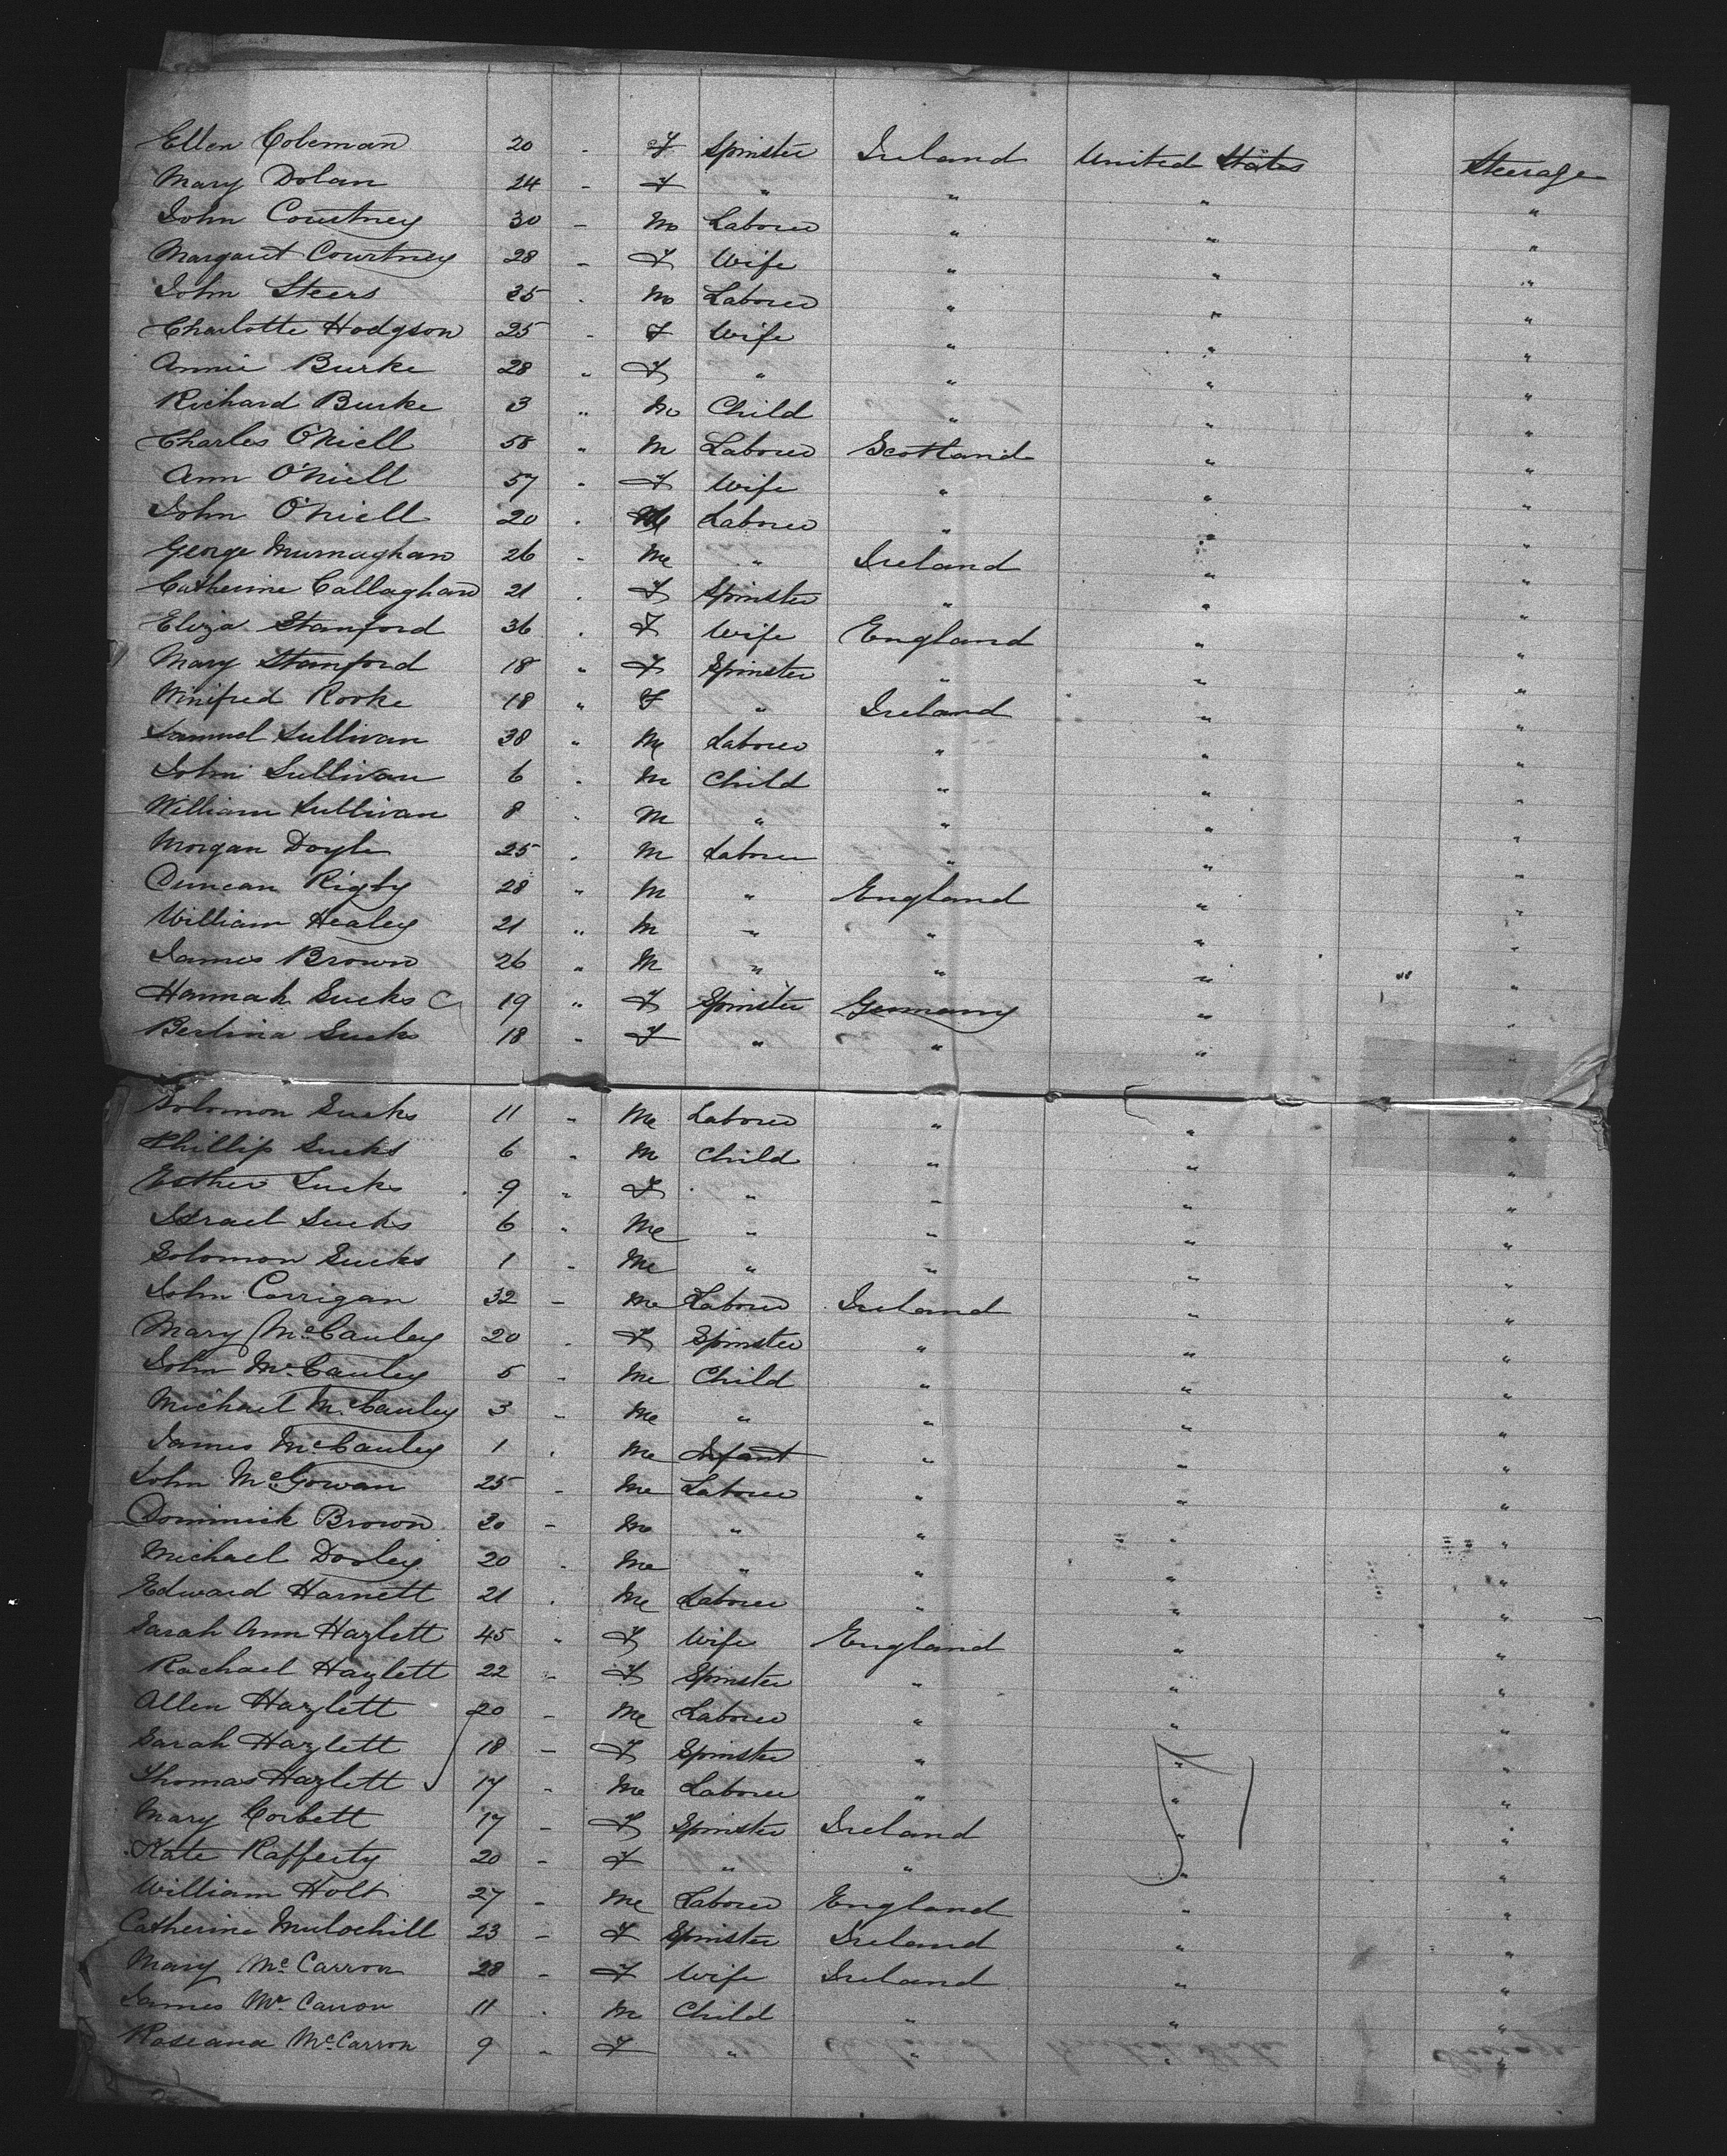 Ellen Coleman 20 - F Spinster Ireland United States Steerage
Mary Dolan 24 - F " " " "
John Courtney 30 - M Laborer " " "
Margaret Courtney 28 - F Wife " " "
John Steers 35 - M Laborer " " "
Charlotte Hodgson 25 - F Wife " " "
Annie Burke 28 " F " " " "
Richard Burke 3 " M Child " " "
Charles O'Niell 58 " M Laborer Scotland " "
Ann O'Niell 57 " F Wife " " "
John O'Niell 20 " M Laborer " " "
George Murnaghan 26 - M " Ireland " "
Catherine Callaghan 21 " F Spinster " " "
Eliza Stanford 36 " F Wife England " "
Mary Stanford 18 " F Spinster " " "
Winifred Rooke 18 " F " Ireland " "
Samuel Sullivan 38 " M Laborer " " "
John Sullivan 6 " M Child " " "
William Sullivan 8 " M " " " "
Morgan Doyle 25 " M Laborer " " "
Duncan Rigby 28 " M " England " "
William Healey 21 " M " " " "
James Brown 26 " M " " " " "
Hannah Sucks 19 " F Spinster Germany " "
Bertina Sucks 18 " F " " " "
Solomon Sucks 11 " M Laborer " " "
Phillip Sucks 6 " M Child " " "
Esther Sucks 9 " F " " " "
Israel Sucks 6 " M " " " "
Solomon Sucks 1 " M " " " "
John Corrigan 32 - M Laborer Ireland " "
Mary McCauley 20 " F Spinster " " "
John McCauley 5 - M Child " " "
Michael McCauley 3 - M " " " "
James McCauley 1 " M Infant " " "
John McGowan 25 - M Laborer " " "
Dominick Brown 30 - M " " " "
Michael Dooley 20 " M " " " "
Edward Harnett 21 " M Laborer " " "
Sarah Ann Hazlett 45 " F Wife England " "
Rachael Hazlett 22 - F Spinster " " "
Allen Hazlett 20 - M Laborer " " "
Sarah Hazlett 18 - F Spinster " " "
Thomas Hazlett 17 - M Laborer " " "
51
Mary Corbett 17 - F Spinster Ireland " "
Kate Rafferty 20 - F " " " "
William Holt 27 - M Laborer England " "
Catherine Mulochill 23 - F Spinster Ireland " "
Mary McCarron 28 - F Wife Ireland " "
James McCarron 11 " M Child " " "
Roseana McCarron 9 " F " " " "